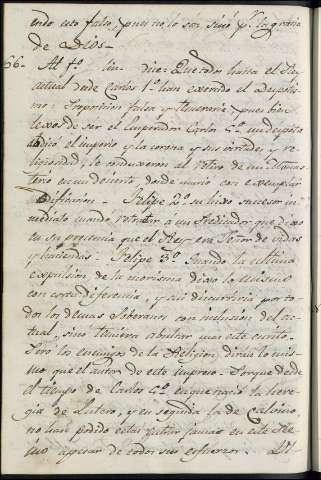 endo esto falso, pues no lo son, sino pr. la gracia
de Dios.
66. Al fo. lin. dice: Que todos hasta el Rey
actual desde Carlos 1o. han exercido el despotis
mo: Imposicion falsa y temeraria, pues bien
lexos de ser el Emperador Carlos 5o. un despota
abdicó el imperio y la corona y sus virtudes y re
ligiosidad, le conduxeron al retiro de un Monas
terio en un desierto, donde murio con exemplar
edificacion. Felipe 2o. su hijo sucesor in
mediato mandó retratar á un Predicador que dixo
en su presencia que el Rey era Señor de vidas
y haciendas. Felipe 3o. quando la ultima
expulsion de la morisma dixo lo mismo
con corta diferencia, y asi discurriria por to
dos los demas Soberanos con inclusion del ac
tual, sino temiera abultar mas este escrito.
Pero los enemigos de la Religion dicen lo mis
mo que el autor de este impreso. Porque desde
el tiempo de Carlos 5o. en que nació la here
gia de Lutero, y en seguida la de Calvino,
no han podido estas entrar jamas en este Rei
no apesar de todos sus esfuerzos.